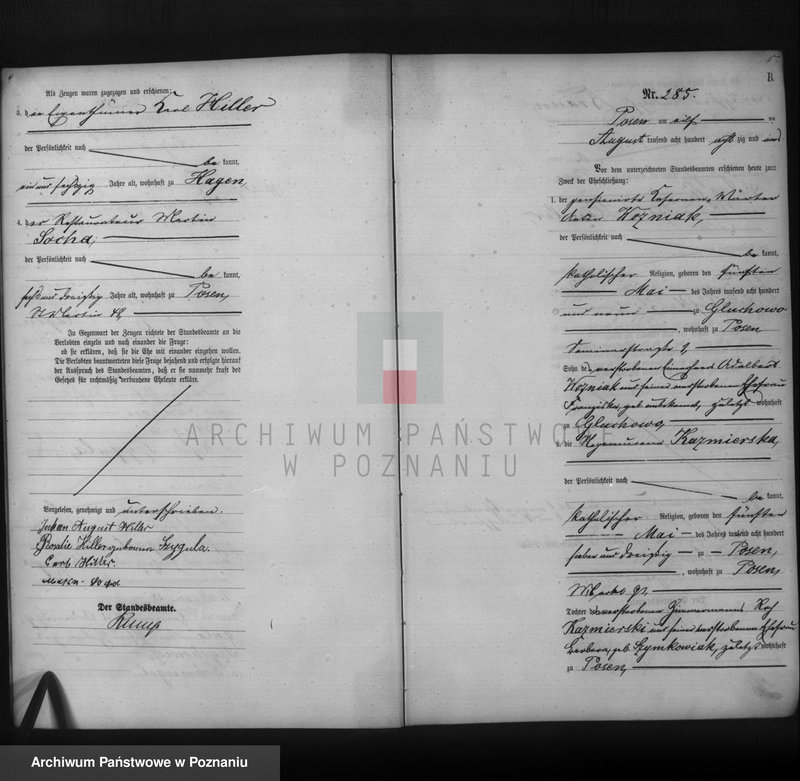 4
Als Zeugen waren zugezogen und erschienen:
3. der Eigenthümer Karl Hiller
der Persönlichkeit nach
bekannt,
ein und sechszig Jahre alt, wohnhaft zu Hagen,
4. der Restaurateur Martin
Socha,
der Persönlichkeit nach
bekannt,
sechs und dreißig Jahre alt, wohnhaft zu Posen,
St. Martin
In Gegenwart der Zeugen richtete der Standesbeamte an die
Verlobten einzeln und nach einander die Frage:
ob sie erklären, daß sie die Ehe mit einander eingehen wollen.
Die Verlobten beantworteten diese Frage bejahend und erfolgte hierauf
der Ausspruch des Standesbeamten, daß er sie nunmehr kraft des
Gesetzes für rechtmäßig verbundene Eheleute erkläre.
Vorgelesen, genehmigt und unterschrieben.
Johan August Hiller
Rosalie Hiller geborene Szygula.
Carl Hiller
Der Standesbeamte.
Kump
5
B.
Nr. 285.
Posen am elf ten
August tausend acht hundert achtzig und
Vor dem unterzeichneten Standesbeamten erschienen heute zum
Zweck der Eheschließung:
1. der pensionirte Kasernen-Wärter
Anton Wozniak,
der Persönlichkeit nach
bekannt,
katholischer Religion, geboren den fünften
Mai des Jahres tausend acht hundert
und neun zu Gluchowo
, wohnhaft zu Posen
Seminarstraße 2,
Sohn des verstorbenen Adalbert
Wozniak und seiner verstorbenen Ehefrau
Franziska, geb. unbekannt, zuletzt wohnhaft
zu Gluchowo
2. die Kazmierska,
der Persönlichkeit nach
bekannt,
katholischer Religion, geboren den fünften
Mai des Jahres tausend acht hundert
sieben und dreißig zu Posen,
, wohnhaft zu Posen,
Tochter des verstorbenen Zimmermanns Roch
Kazmierski und seiner verstorbenen Ehefrau
Barbara, geb. Szymkowiak, zuletzt wohnhaft
zu Posen,
ARCHIWUM PAŃSTWOWE
W POZNANIU
Archiwum Państwowe w Poznaniu